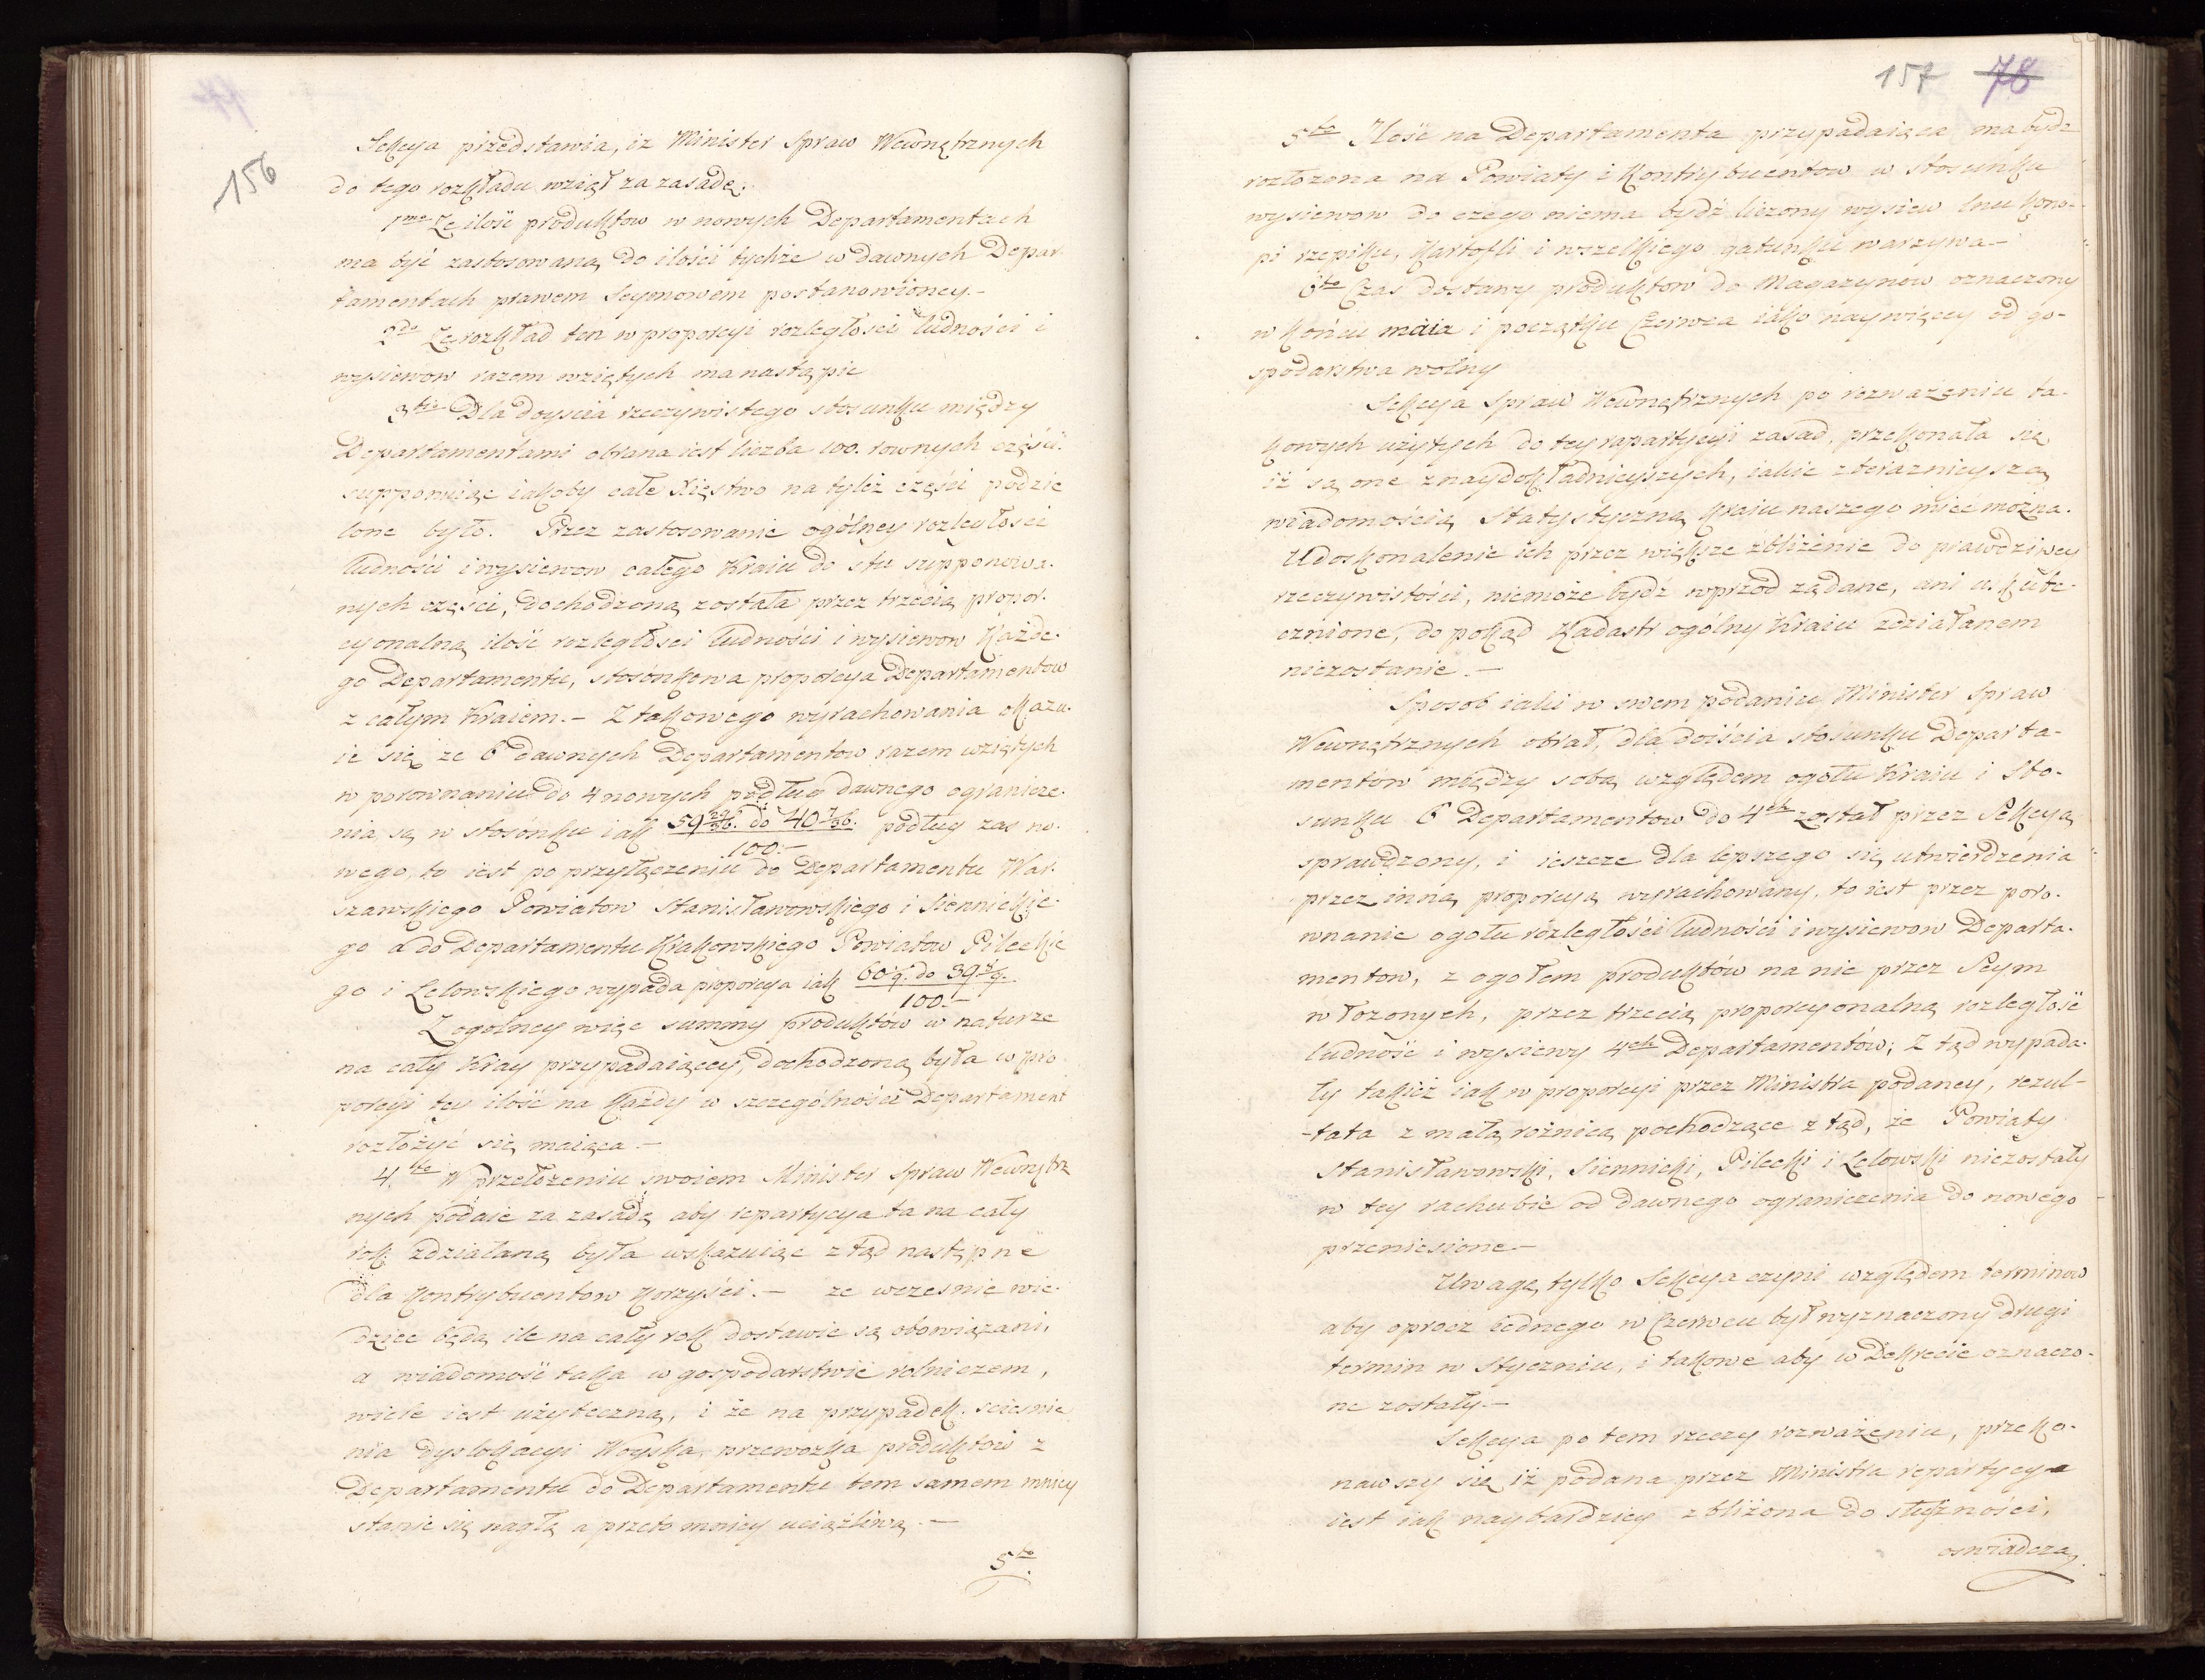 156
Sekcya przedstawia, iż Minister Spraw Wewnętrznych
do tego rozkładu wziął za zasadę.
1mo Że ilość produktow w nowych Departamentach
ma być zastosowaną do ilości tychże w dawnych Depar-
tamentach prawem Seymowem postanowioney.-
2do Że rozkład ten w proporcyi rozległości ludności i
wysiewow razem wziętych ma nastąpic
3tio Dla doyscia rzeczywistego stosunku między
Departamentami obrana iest liczba 100. rownych części.
supponuiąc iakoby całe Xięstwo na tyleż części podzie
lone było. Przez zastosowanie ogólney rozległości
ludności i wysiewow całego Kraiu do stu supponowa-
nych części, dochodzoną została przez trzecią propor-
cyonalną ilość rozległości ludności i wysiewow każde-
go Departamentu, stosónkowa proporcya Departamentow
z całym Kraiem.- Z takowego wyrachowania okazu-
ie się że 6 dawnych Departamentow razem wziętych
w porownaniu do 4 nowych podług dawnego ogranicze-
nia są w stosónku iak 59 29/36. do 40 7/36. podług zas no-
100.-
wego, to iest po przyłączeniu do Departamentu War-
szawskiego Powiatow Stanisławowskiego i Siennickie-
go a do Departamentu Krakowskiego Powiatow Pileckie
go i Lelowskiego wypada proporcya iak 60 4/9. do 39 5/9.
100.-
Z ogolney więc summy produktów w naturze
na cały Kray przypadaiącey, dochodzoną była w pro
porcyi tey ilość na każdy w szczególności Departament
rozłożyć się maiąca.-
4.to W przełożeniu swoiem Minister Spraw Wewnętrz
nych podaie za zasadę aby repartycya ta na cały
rok zdziałaną była wskazuiąc z tąd następne
dla kontrybuentow korzyści.- że wczesnie wie-
dziec będą ile na cały rok dostawic są obowiązani,
a wiadomość taka w gospodarstwie rolniczem,
wiele iest użyteczną, i że na przypadek sciesnie
nia dyslokacyi Woyska, przewozka produktow z
Departamentu do Departamentu tem samem mniey
stanie się nagłą a przeto mniey uciążliwą.-
5to
157 78
5to Ilość na Departamenta przypadaiąca ma bydz
rozłożona na Powiaty i Kontrybuentow w stosunku
wysiewow do czego niema bydź liczony wysiew lnu kono-
pi rzepiku, kartofli i wszelkiego gatunku warzywa.-
6to Czas dostawy produktow do Magazynow oznaczony
w końcu maia i początku Czerwca iako naywięcey od go-
spodarstwa wolny
Sekcya Spraw Wewnętrznych po rozważeniu ta-
kowych użytych do tey repartycyi zasad, przekonała się
iż są one z naydokładnieyszych, iakie z teraznieyszą
wiadomością Statystyczną Kraiu naszego mieć można.
Udoskonalenie ich przez większe zbliżenie do prawdziwey
rzeczywistości, niemoże bydź wprzód żądane, ani uskute-
cznione, dopokąd Kadastr ogólny Kraiu zdziałanem
niezostanie.-
Sposob iaki w swem podaniu Minister Spraw
Wewnętrznych obrał, dla doiścia stosunku Departa-
mentów między sobą względem ogołu Kraiu i Sto-
sunku 6 Departamentow do 4ch został przez Sekcyą
sprawdzony, i ieszcze dla lepszego się utwierdzenia
przez inną proporcyą wyrachowany, to iest przez poro-
wnanie ogołu rozległości ludności i wysiewow Departa-
mentow, z ogołem produktów na nie przez Seym
włożonych, przez trzecią proporcyonalną rozległość
ludność i wysiewy 4ch Departamentów; Z tąd wypada-
ły takież iak w proporcyi przez Ministra podaney, rezul-
-tata z małą rożnicą pochodzące z tąd, że Powiaty
Stanisławowski, Siennicki, Pilecki i Lelowski niezostały
w tey rachubie od dawnego ograniczenia do nowego
przeniesione.-
Uwagę tylko Sekcya czyni względem terminow
aby oprocz iednego w Czerwcu był wyznaczony drugi
termin w Styczniu, i takowe aby w Dekrecie oznaczo-
ne zostały.-
Sekcya po tem rzeczy rozważeniu, przeko-
nawszy się iż podana przez Ministra repartycya
iest iak naybardziey zbliżona do słuszności,
oswiadcza,